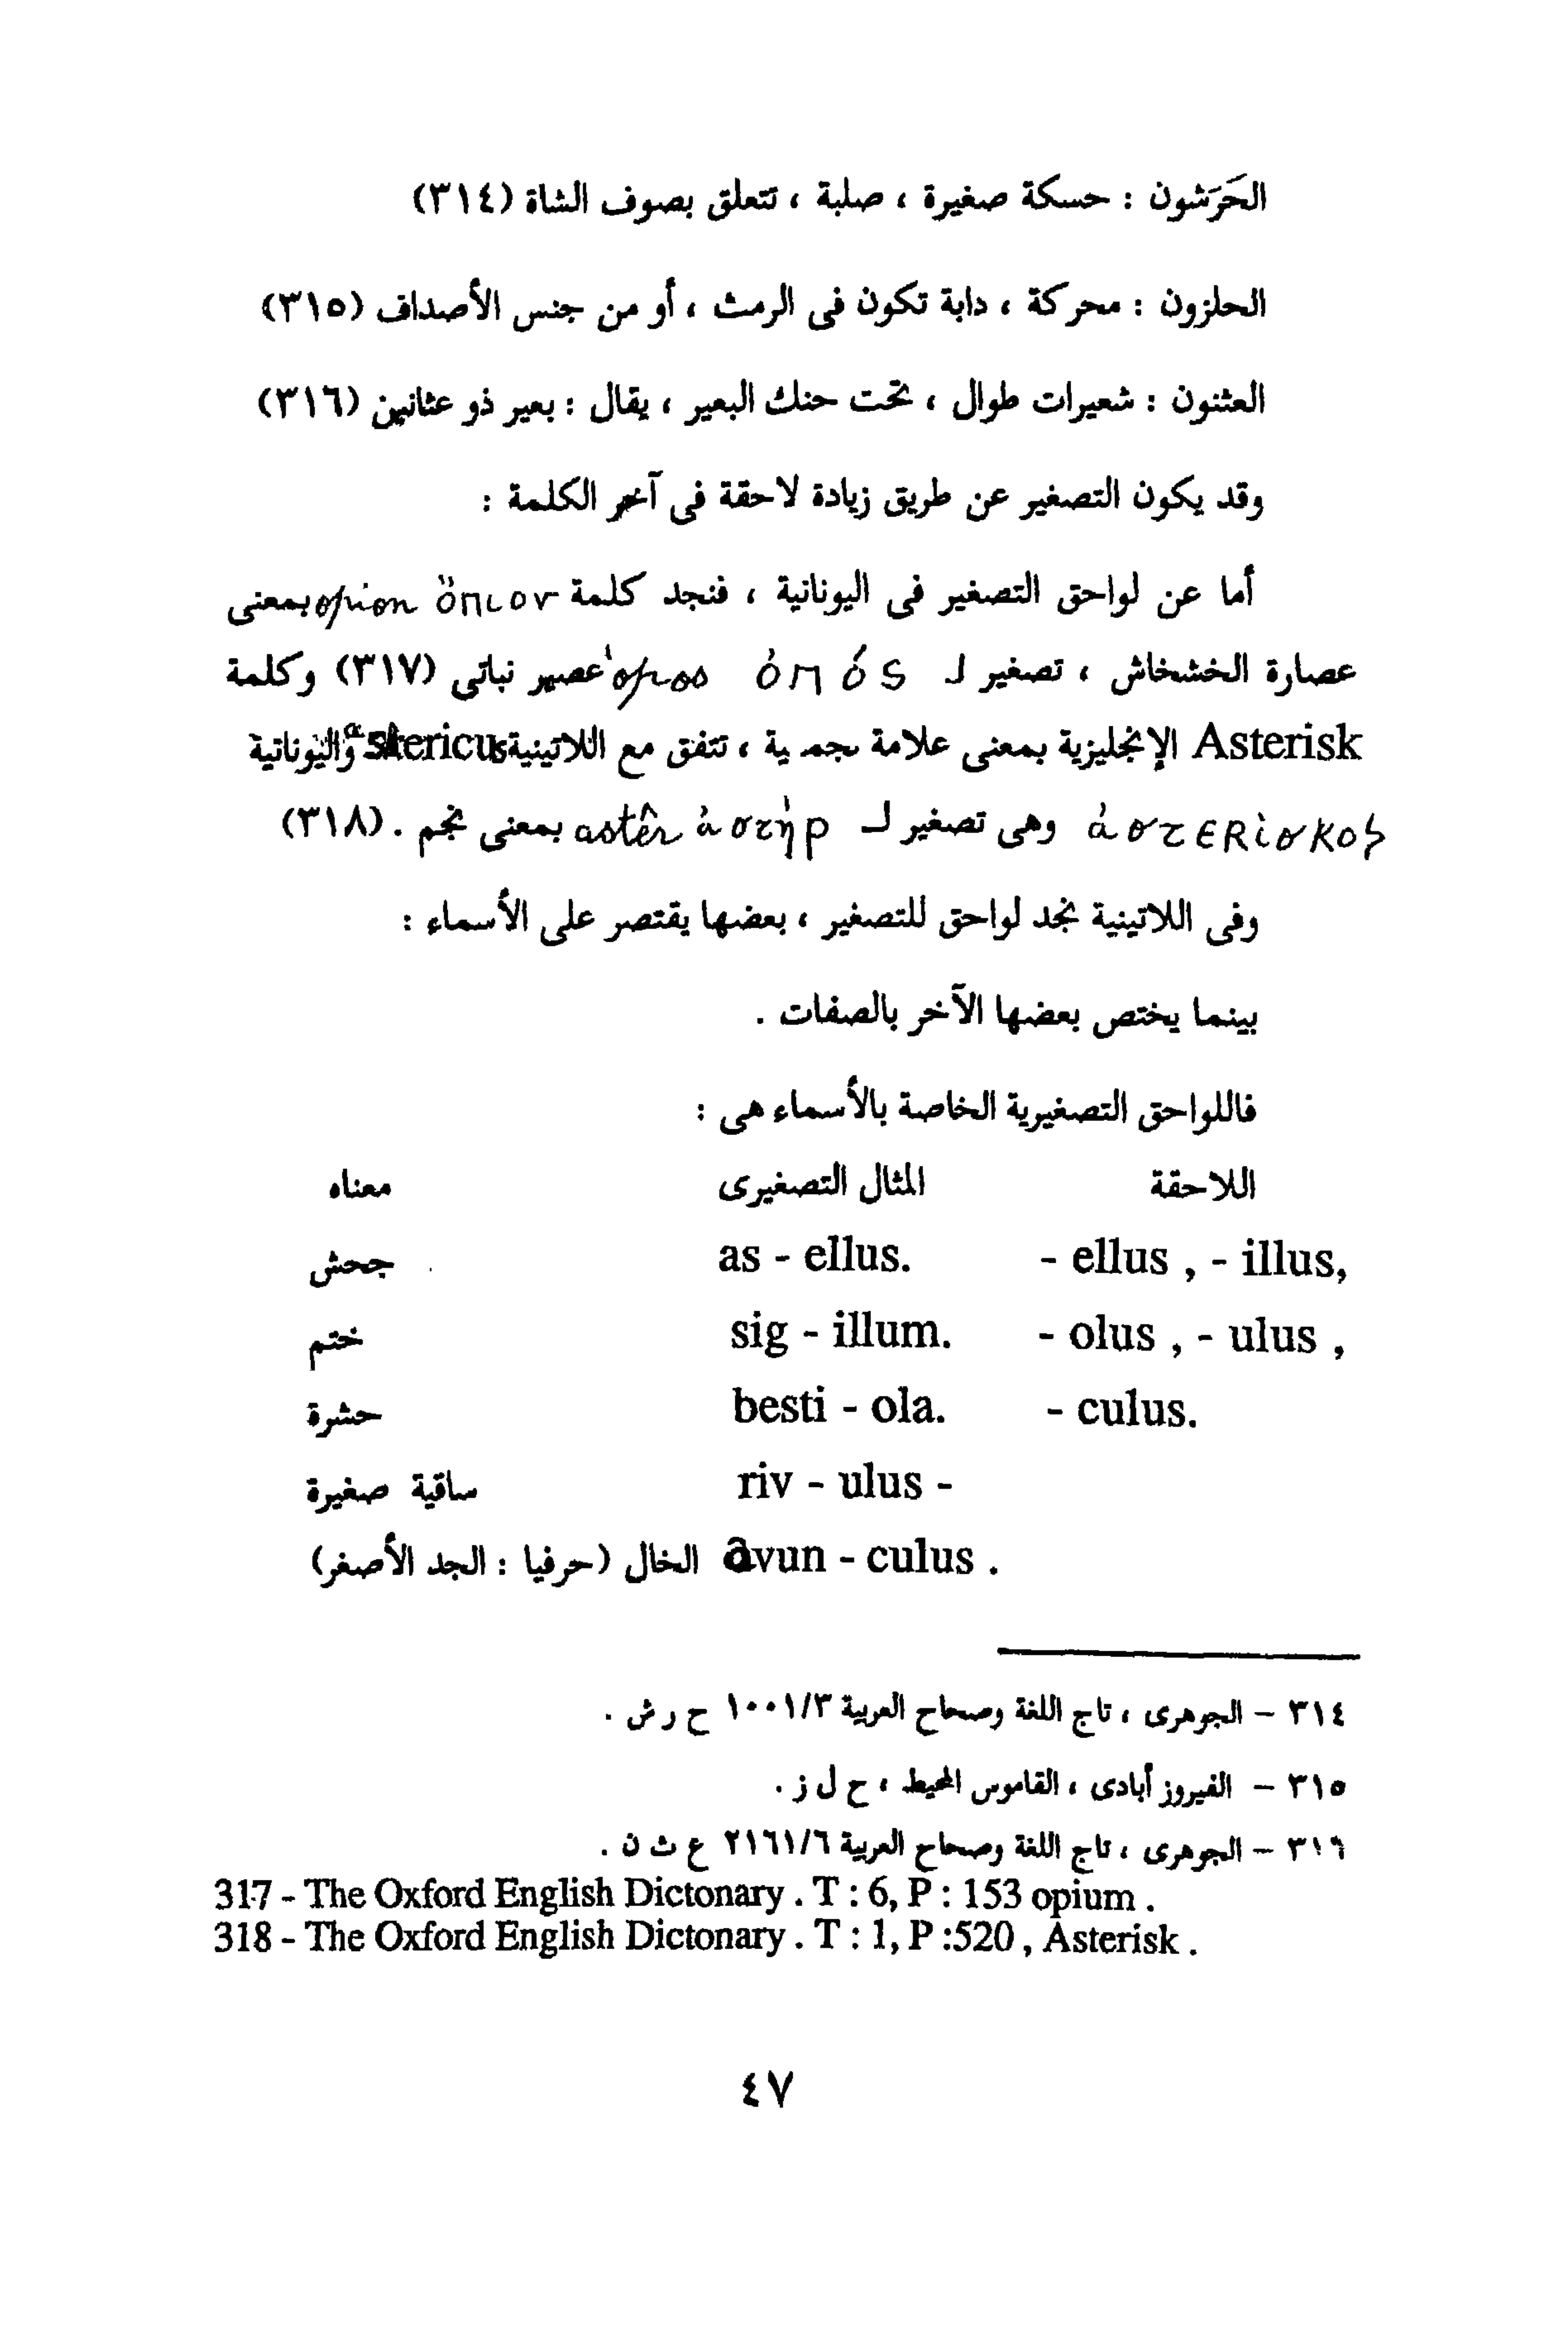 الحَرَشون : حسكة صغيرة ، صلبة ، تتعلق بصوف الشاة (٣١٤)
الحلزون : محركة ، دابة تكون فى الرمث ، أو من جنس الأصداف (٣١٥)
العثنون : شعيرات طوال ، تحت حنك البعير ، يقال : بعير ذو عثانين (٣١٦)
وقد يكون التصغير عن طريق زيادة لاحقة فى آخر الكلمة :
أما عن لواحق التصغير فى اليونانية ، فنجد كلمة ὄπιον opion بمعنى
عصارة الخشخاش ، تصغير لـ ὀπός opos عصير نباتى (٣١٧) وكلمة
Asterisk الإنجليزية بمعنى علامة نجمية ، تتفق مع اللاتينية astericus واليونانية
ἀστερίσκος وهى تصغير لـ ἀστήρ astêr بمعنى نجم . (٣١٨)
وفى اللاتينية نجد لواحق للتصغير ، بعضها يقتصر على الأسماء :
بينما يختص بعضها الآخر بالصفات .
فاللواحق التصغيرية الخاصة بالأسماء هى :
اللاحقة المثال التصغيرى معناه
- ellus , - illus, as - ellus. جحش
- olus , - ulus , sig - illum. ختم
- culus. besti - ola. حشرة
riv - ulus - ساقية صغيرة
âvun - culus . الخال (حرفيا : الجد الأصغر)
٣١٤ – الجوهرى ، تاج اللغة وصحاح العربية ١٠٠١/٣ ح ر ش .
٣١٥ – الفيروز أبادى ، القاموس المحيط ، ح ل ز .
٣١٦ – الجوهرى ، تاج اللغة وصحاح العربية ٢١٦١/٦ ع ث ن .
317 - The Oxford English Dictonary . T : 6, P : 153 opium .
318 - The Oxford English Dictonary . T : 1, P :520 , Asterisk .
٤٧